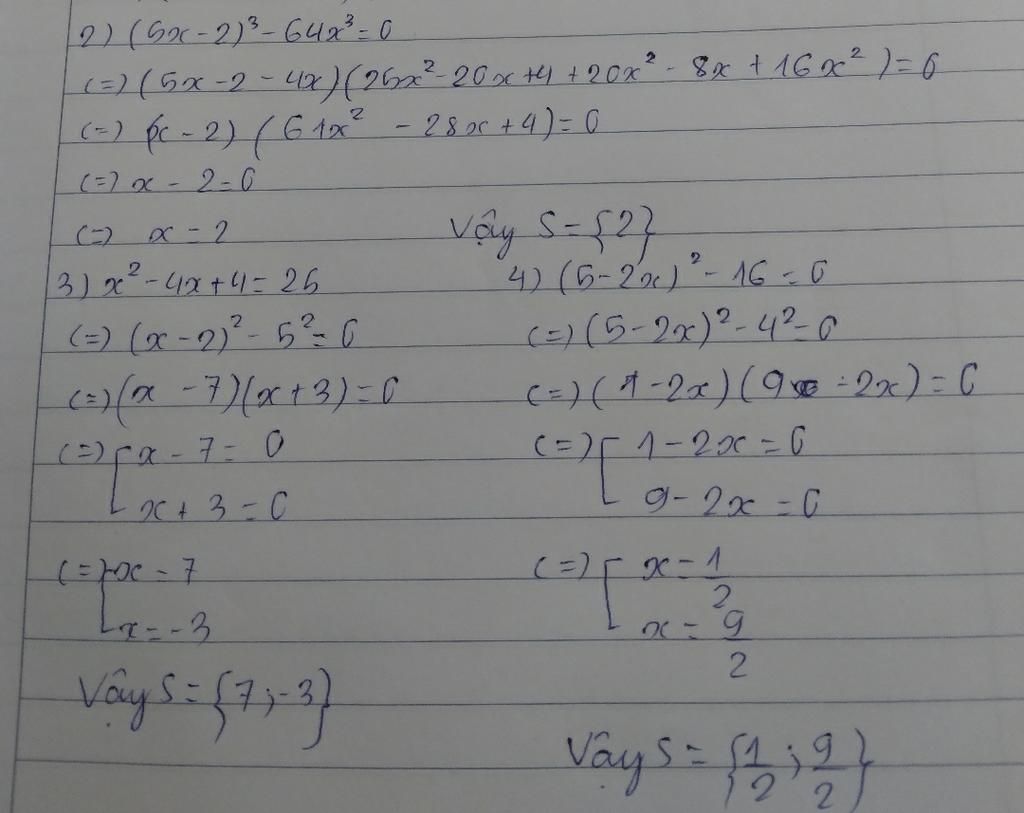 2) (5x - 2)³ - 64x³ = 0
(=) (5x - 2 - 4x)(25x² - 20x + 4 + 20x² - 8x + 16x²) = 0
(=) (x - 2) (61x² - 28x + 4) = 0
(=) x - 2 = 0
(=) x = 2 Vậy S = {2}
3) x² - 4x + 4 = 25
(=) (x - 2)² - 5² = 0
(=) (x - 7)(x + 3) = 0
(=) [ x - 7 = 0
x + 3 = 0
(=) [ x = 7
x = -3
Vậy S = {7; -3}
4) (5 - 2x)² - 16 = 0
(=) (5 - 2x)² - 4² = 0
(=) (1 - 2x)(9 - 2x) = 0
(=) [ 1 - 2x = 0
9 - 2x = 0
(=) [ x = 1/2
x = 9/2
Vậy S = {1/2; 9/2}